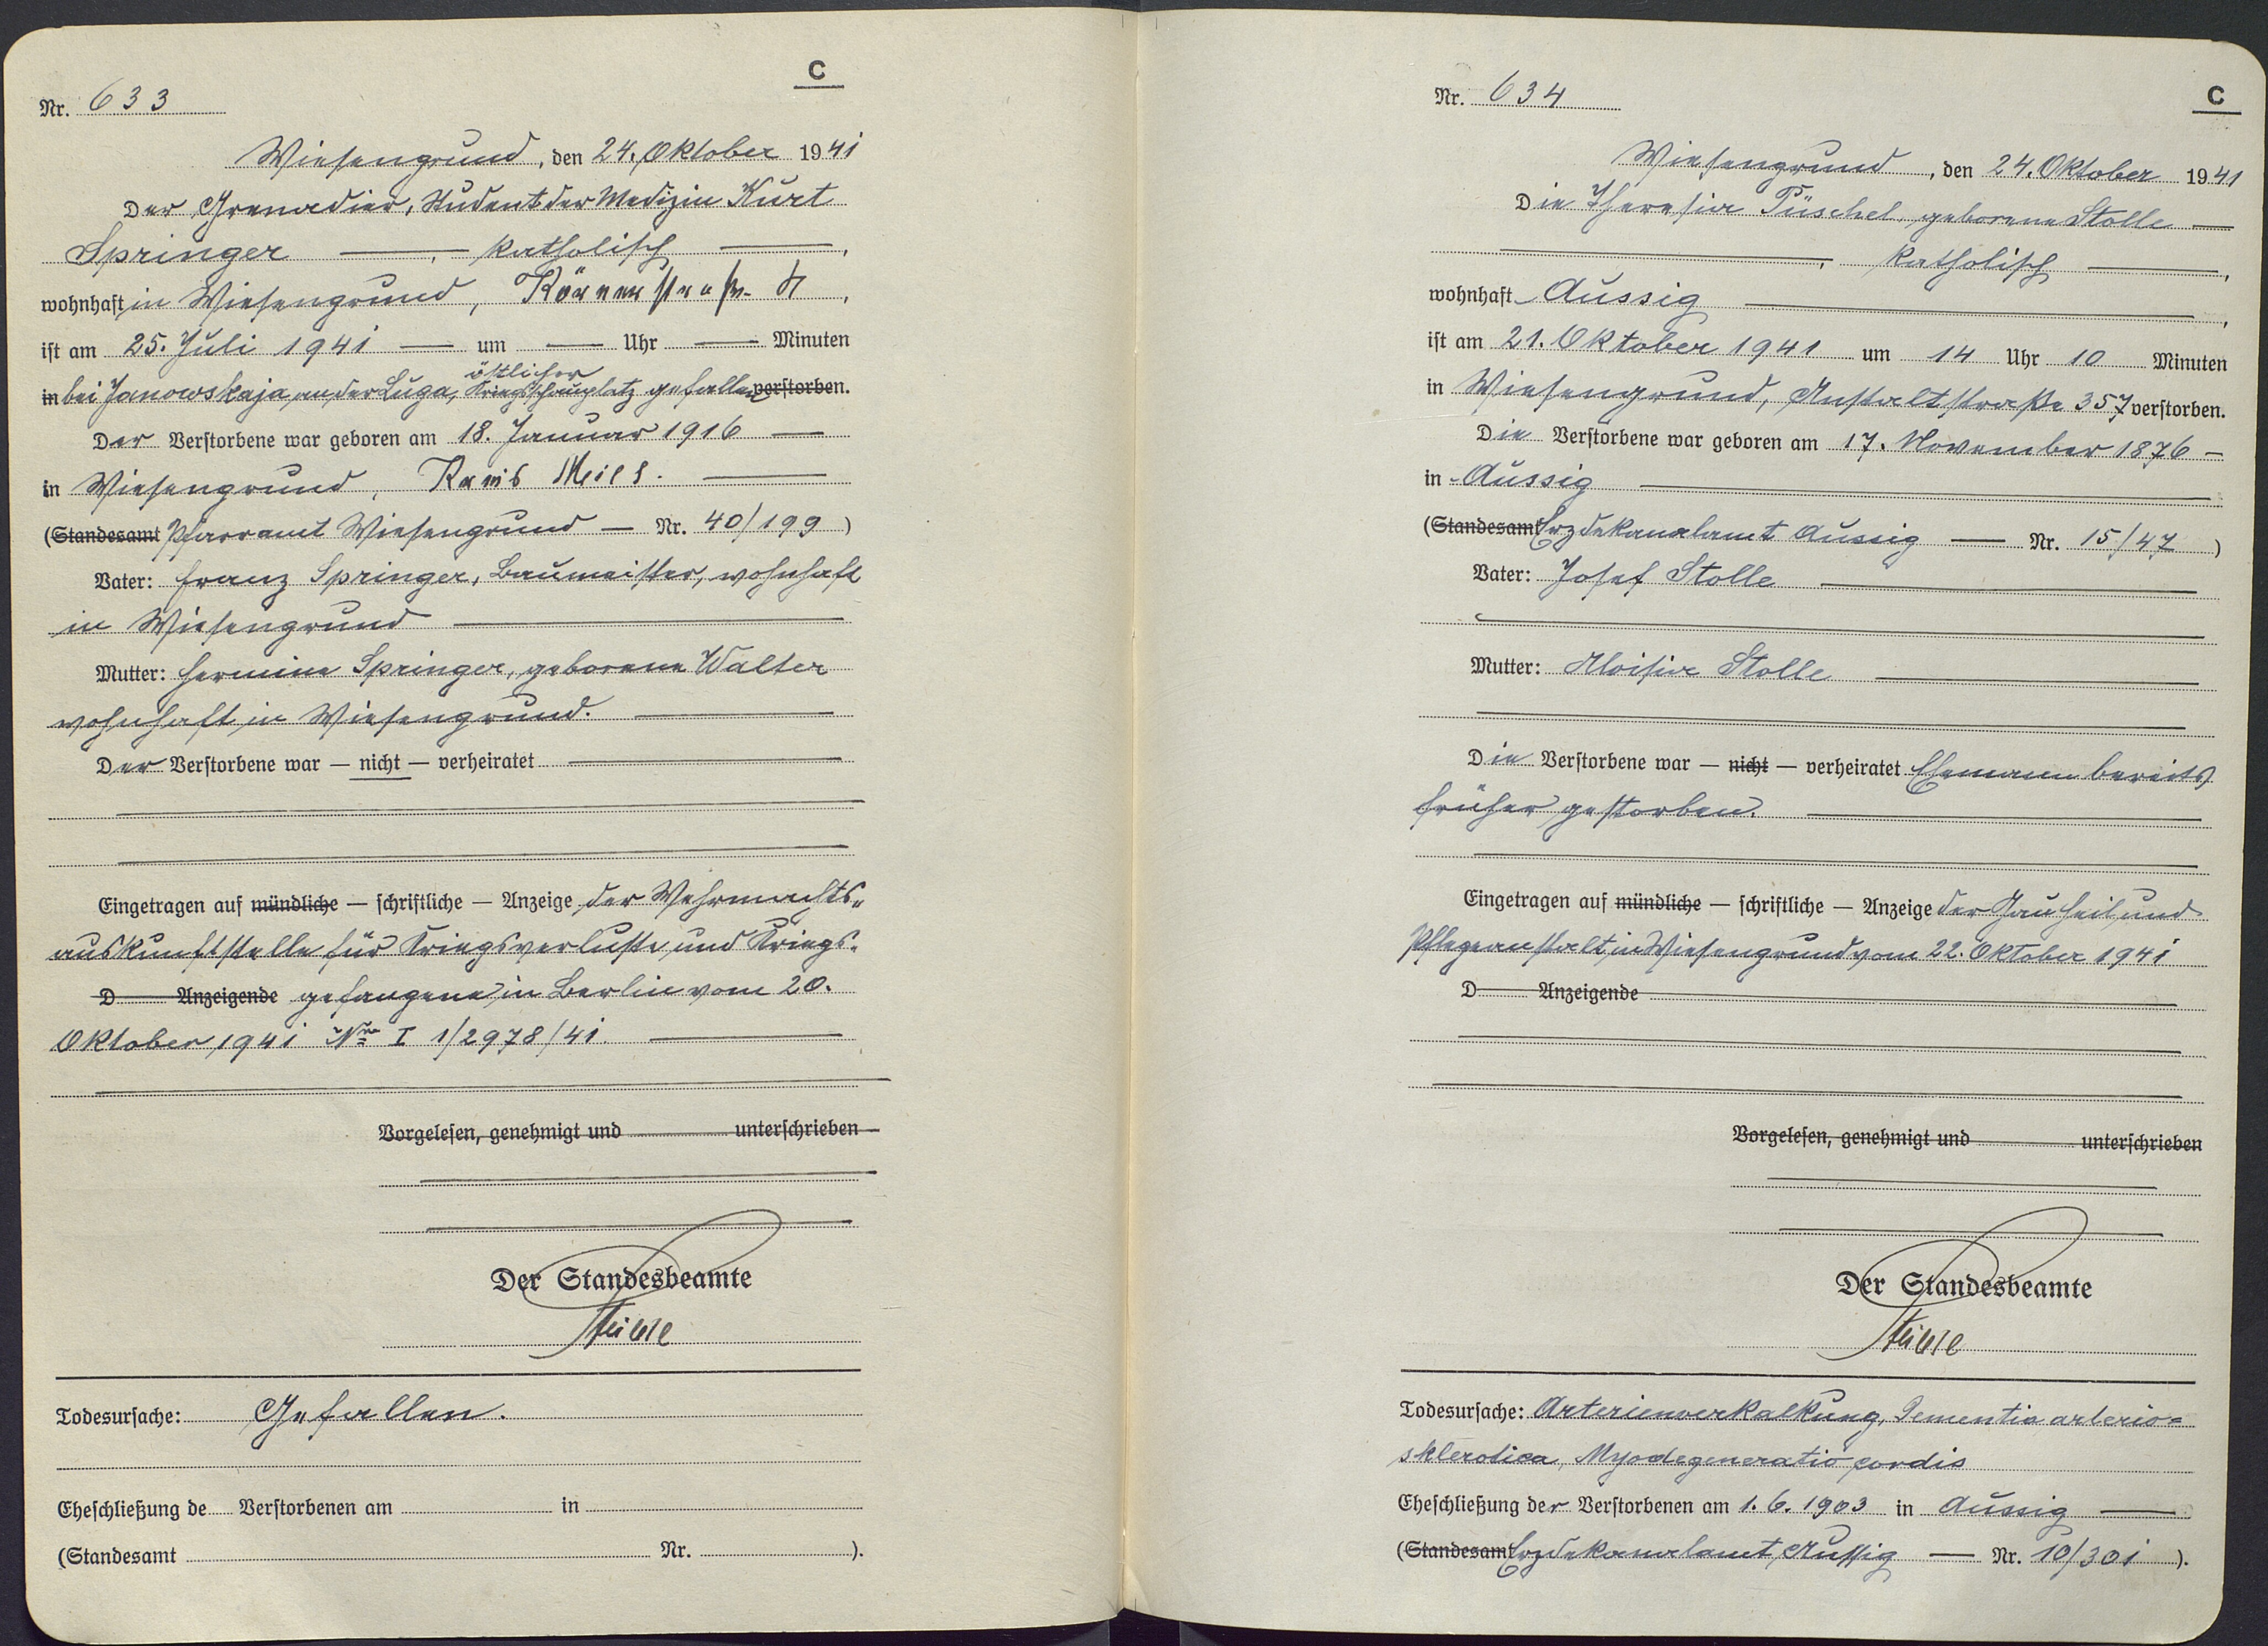 C
Nr. 633
Wiesengrund, den 24. Oktober 1941
Der Grenadier, Student der Medizin Kurt
Springer —, katholisch —,
wohnhaft in Wiesengrund, Körnerstraße
ist am 25. Juli 1941 — um — Uhr — Minuten
östlicher
in bei Janowskaja, an der Luga, Kriegsschauplatz gefallen verstorben.
Der Verstorbene war geboren am 18. Januar 1916 —
in Wiesengrund, —
(Standesamt Pfarramt Wiesengrund — Nr. 40/199)
Vater: Franz Springer, Baumeister, wohnhaft
in Wiesengrund —
Mutter: Hermine Springer, geborene Walter
wohnhaft in Wiesengrund. —
Der Verstorbene war — nicht — verheiratet —
Eingetragen auf mündliche — schriftliche — Anzeige der Wehrmachts-
auskunftstelle für Kriegsverluste und Kriegs-
D Anzeigende gefangene in Berlin vom 20.
Oktober 1941 Nr. I 1/2978/41. —
Vorgelesen, genehmigt und unterschrieben
Der Standesbeamte
Todesursache: Gefallen.
Eheschließung de Verstorbenen am in
(Standesamt Nr. ).
C
Nr. 634
Wiesengrund, den 24. Oktober 1941
Die Theresia Püschel, geborene Stolle —
—, katholisch —,
wohnhaft Aussig —,
ist am 21. Oktober 1941 um 14 Uhr 10 Minuten
in Wiesengrund, Anstaltstraße 357 verstorben.
Die Verstorbene war geboren am 17. November 1876 —
in Aussig —
(Standesamt Erzdekanalamt Aussig — Nr. 15/47)
Vater: Josef Stolle —
Mutter: Aloisia Stolle —
Die Verstorbene war — nicht — verheiratet Ehemann bereits
früher gestorben. —
Eingetragen auf mündliche — schriftliche — Anzeige der Gau Heil und
Pflegeanstalt in Wiesengrund vom 22. Oktober 1941
D Anzeigende
Vorgelesen, genehmigt und unterschrieben
Der Standesbeamte
Todesursache: Arterienverkalkung, Dementia arterio-
sklerotica, Myodegeneratio cordis
Eheschließung der Verstorbenen am 1. 6. 1903 in Aussig —
(Standesamt Erzdekanalamt Aussig — Nr. 10/301).